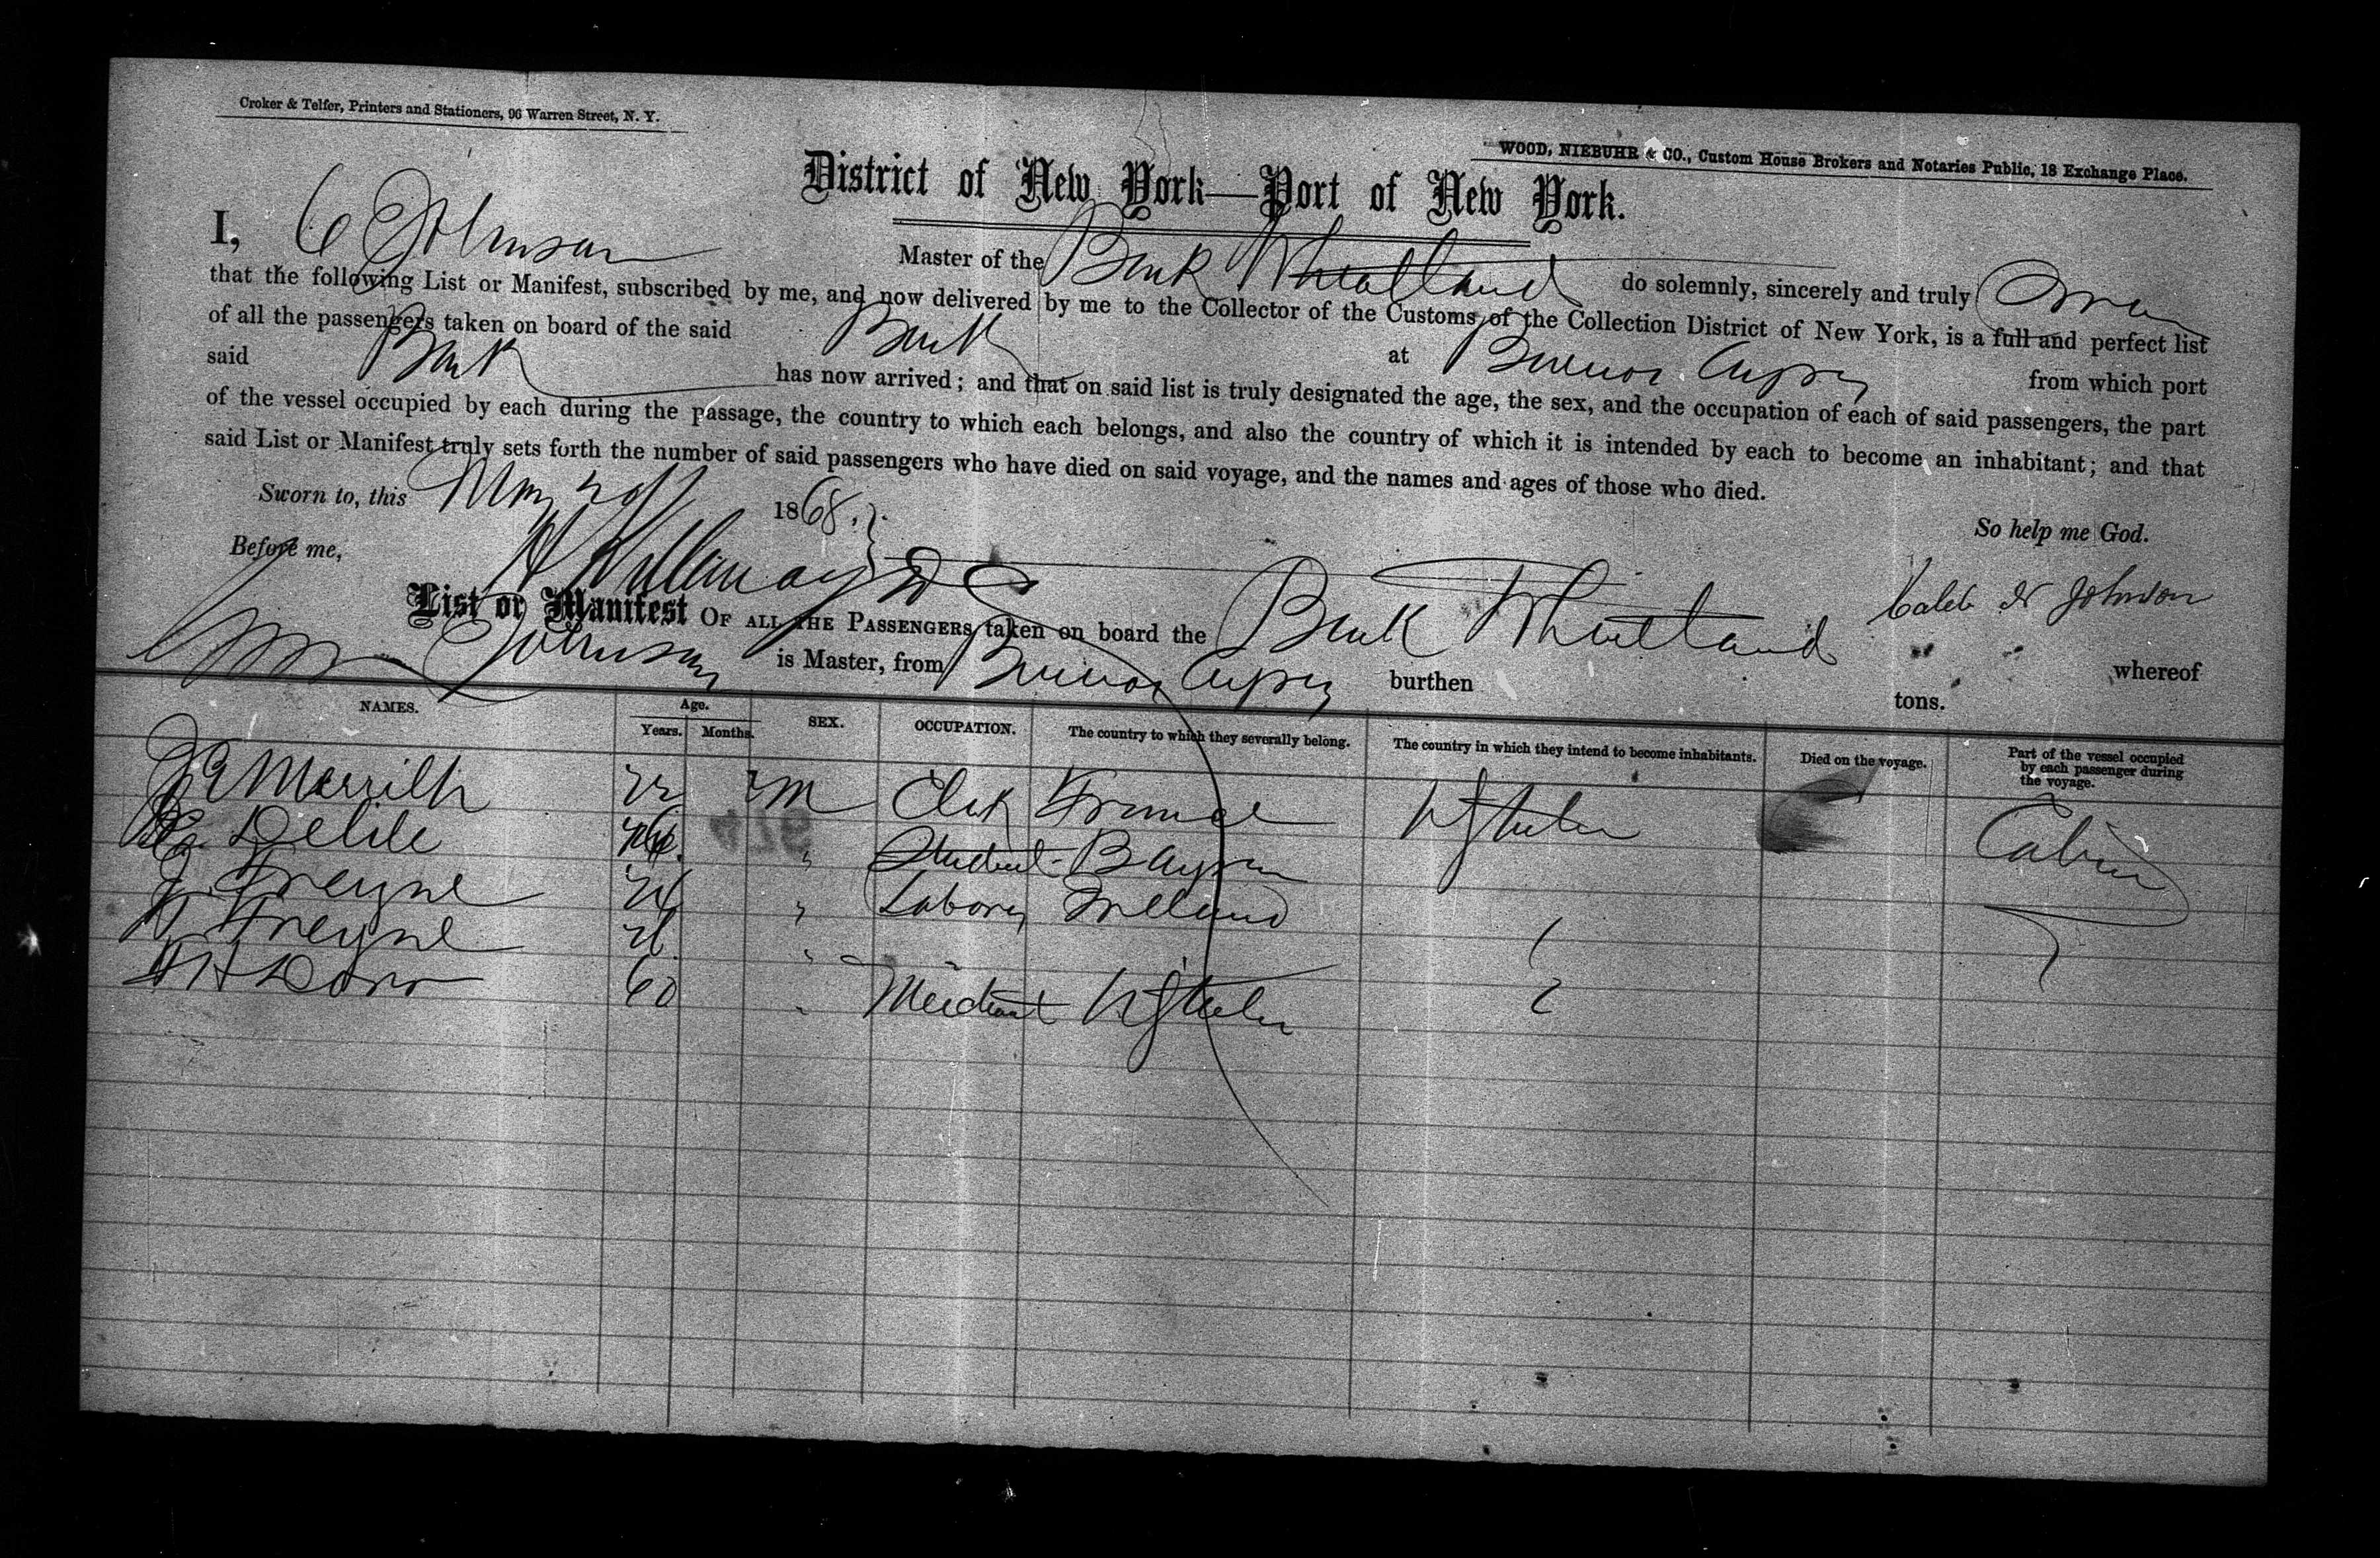 Croker & Telfer, Printers and Stationers, 96 Warren Street, N. Y.
WOOD, NIEBUHR & CO., Custom House Brokers and Notaries Public, 18 Exchange Place.
District of New York—Port of New York.
I, C Johnson Master of the Bark Wheatland do solemnly, sincerely and truly swear
that the following List or Manifest, subscribed by me, and now delivered by me to the Collector of the Customs of the Collection District of New York, is a full and perfect list
of all the passengers taken on board of the said Bark at Buenos Ayres from which port
said Bark has now arrived; and that on said list is truly designated the age, the sex, and the occupation of each of said passengers, the part
of the vessel occupied by each during the passage, the country to which each belongs, and also the country of which it is intended by each to become an inhabitant; and that
said List or Manifest truly sets forth the number of said passengers who have died on said voyage, and the names and ages of those who died.
Sworn to, this May 1868. So help me God.
Before me, Caleb Johnson
List or Manifest OF ALL THE PASSENGERS taken on board the Bark Wheatland whereof
Johnson is Master, from Buenos Ayres burthen tons.
NAMES. Age. Years. Months. SEX. OCCUPATION. The country to which they severally belong. The country in which they intend to become inhabitants. Died on the voyage. Part of the vessel occupied by each passenger during the voyage.
Merrill M Clerk France Cabin
Delile " Student
J. Freyne " Labory Ireland
Freyne "
H Dorr 60 " Merchant